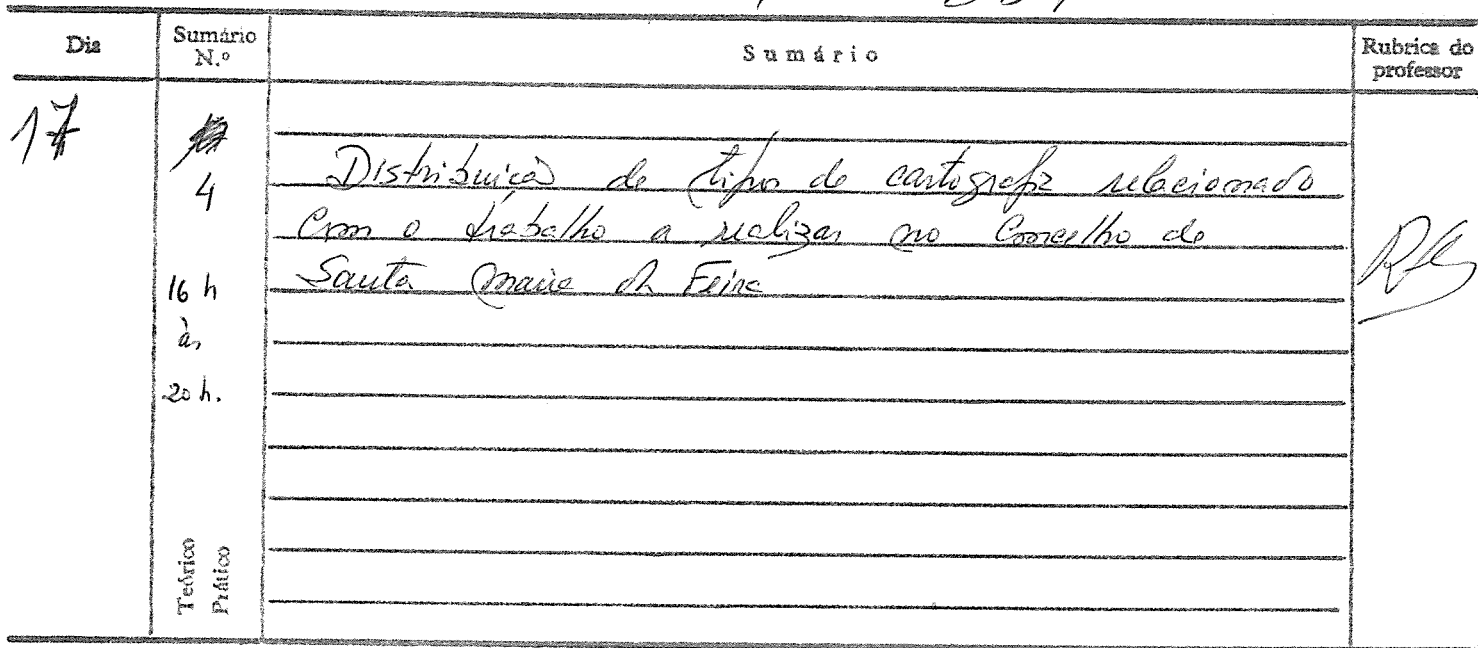 Dia
Sumário N.º
Sumário
Rubrica do professor
17
4
16 h
às
20 h.
Distribuição de tipo de cartografia relacionado
com o trabalho a realizar no Concelho de
Santa Maria da Feira
Teórico
Prático